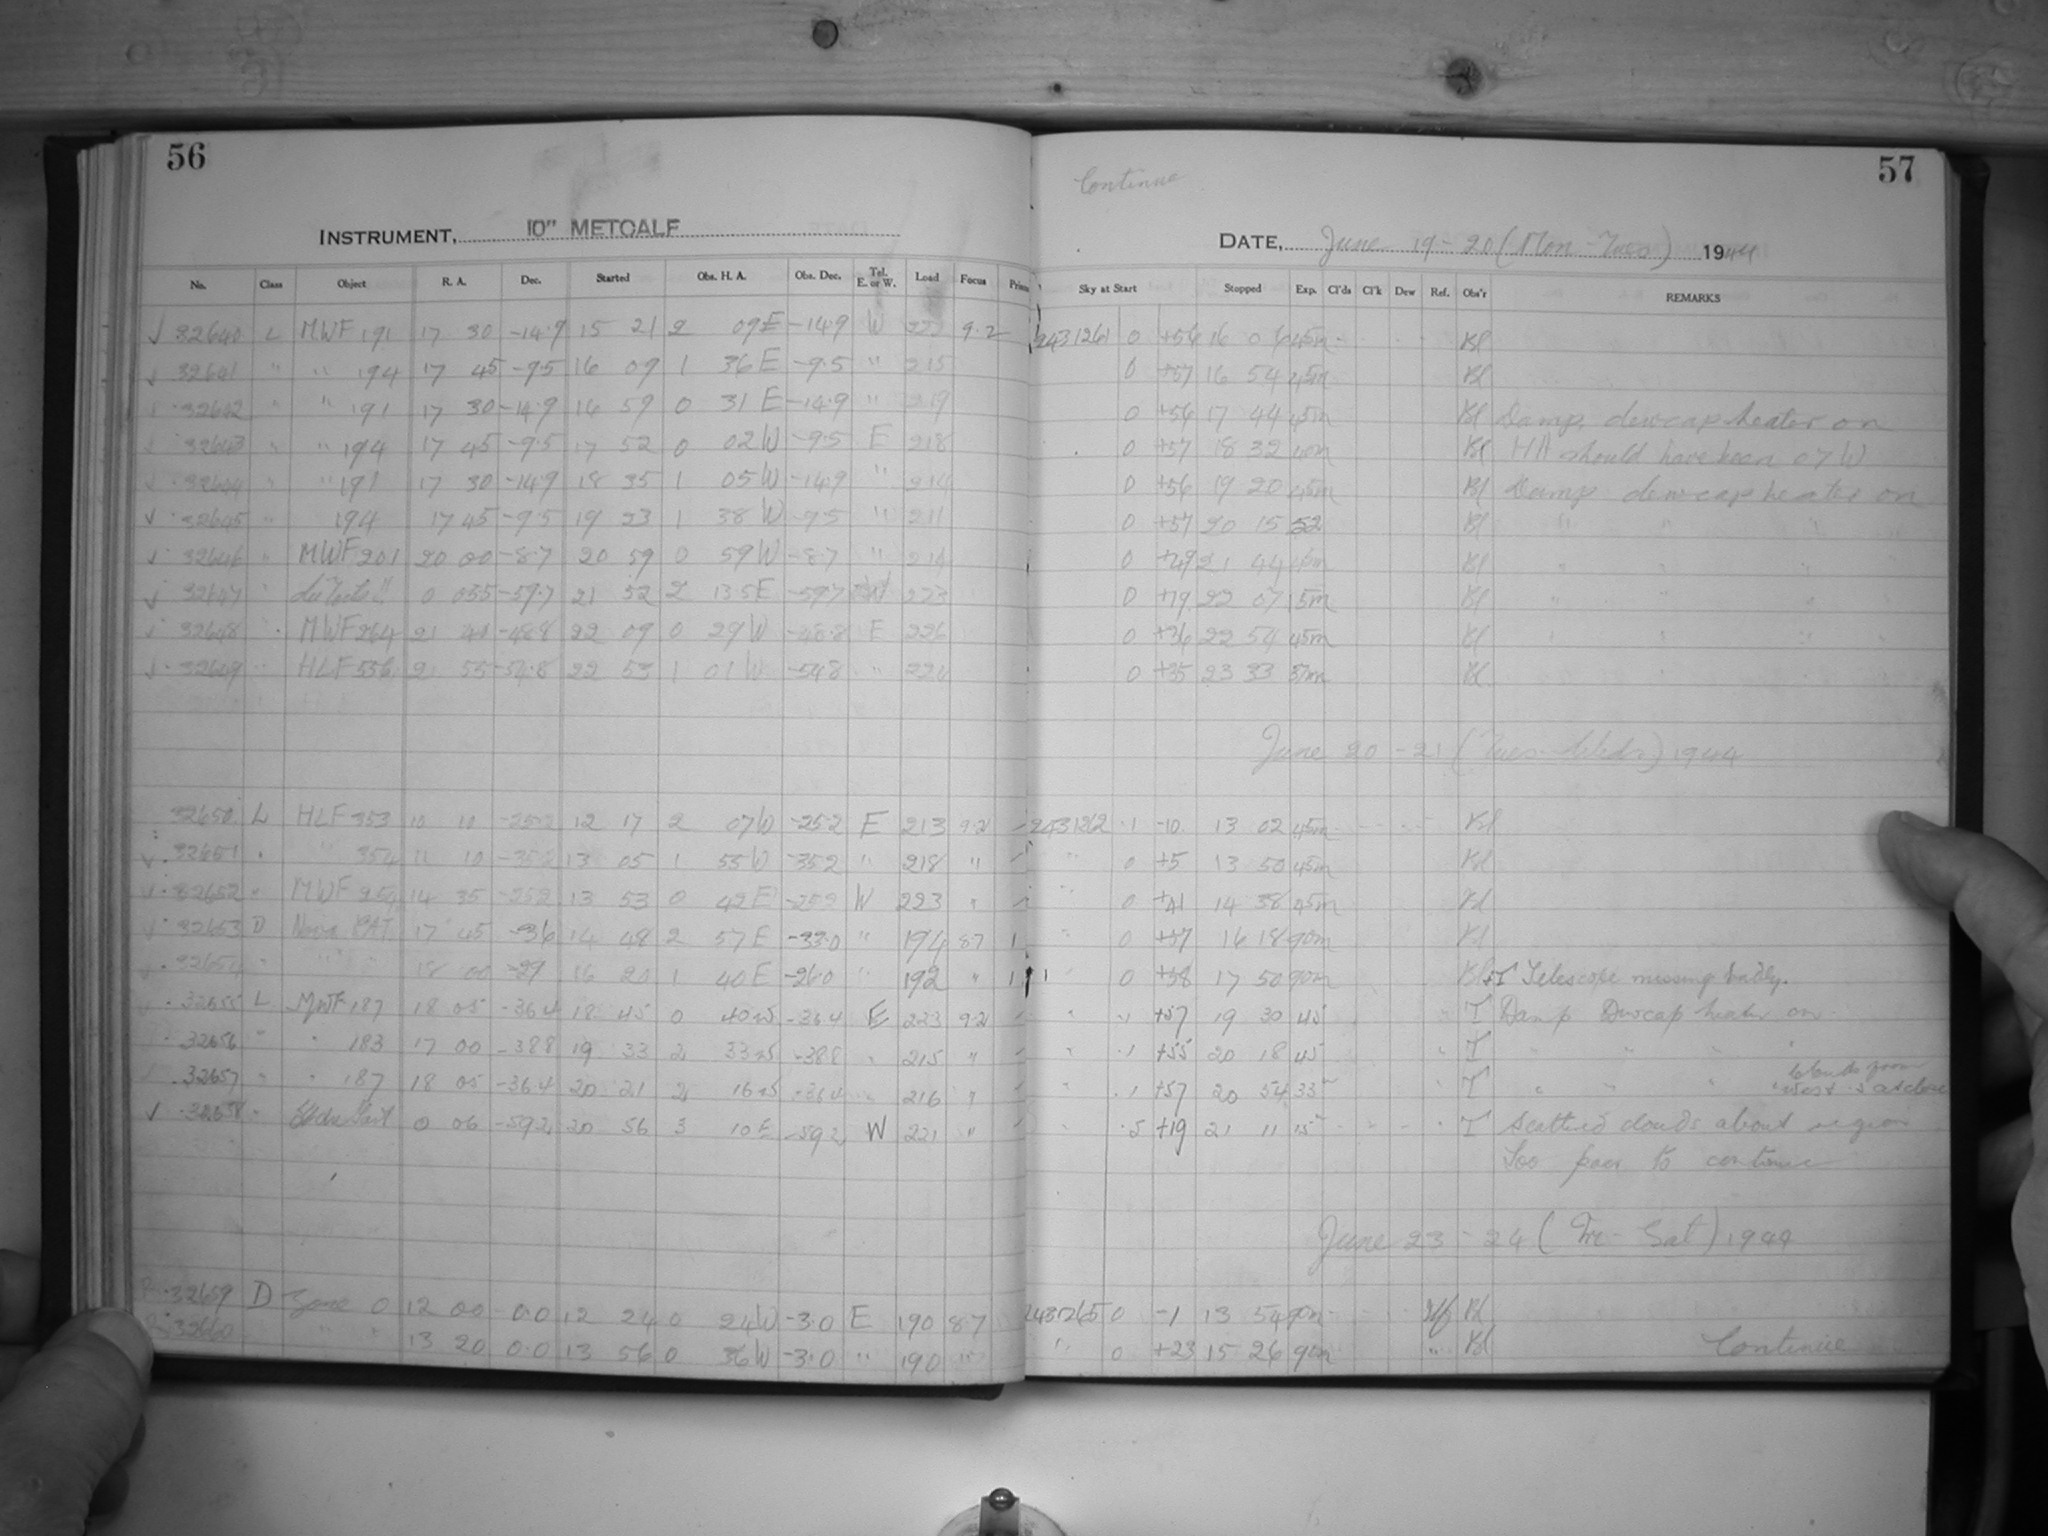 56
INSTRUMENT, 10" METCALF
No. Class Object R. A. Dec. Started Obs. H. A. Obs. Dec. Tel. E. or W. Load Focus
32640 L MWF 191 17 30 -14.9 15 21 2 09 E -14.9 W 9.2
32641 " " 194 17 45 -9.5 16 09 1 36 E -9.5 " 215
32642 " " 191 17 30 -14.9 16 59 0 31 E -14.9 " 219
32643 " " 194 17 45 -9.5 17 52 0 02 W -9.5 E 218
32644 " " 191 17 30 -14.9 18 35 1 05 W -14.9 " 214
32645 " 194 17 45 -9.5 19 23 1 38 W -9.5 " 211
32646 " MWF 201 20 00 -8.7 20 59 0 59 W -8.7 " 214
32647 " 0 055 -59.7 21 52 2 13.5 E -59.7 W 223
32648 MWF 264 21 41 -48.8 22 09 0 29 W -48.8 E 226
32649 " HLF 556 21 55 -54.8 22 53 1 01 W -54.8 "
32650 L HLF 353 10 10 -25.2 12 17 2 07 W -25.2 E 213 9.2
32651 " " 354 11 10 -35.2 13 05 1 55 W -35.2 " 218 "
32652 " MWF 254 14 35 -25.2 13 53 0 42 E -25.2 W 223 "
32653 D Nova PAT. 17 45 -36 14 48 2 57 E -33.0 " 194 8.7 1
32654 " " " 18 00 -29 16 20 1 40 E -26.0 " 192 " 1
32655 L MWF 187 18 05 -36.4 18 45 0 40 W -36.4 E 223 9.2
32656 " " 183 17 00 -38.8 19 33 2 33 W -38.8 " 215 "
32657 " " 187 18 05 -36.4 20 21 2 16 W -36.4 " 216 "
32658 " 0 06 -59.2 20 56 3 10 E -59.2 W 221 "
32659 D Zone 0 12 00 0.0 12 24 0 24 W -3.0 E 190 8.7
32660 " " 13 20 0.0 13 56 0 36 W -3.0 " 190 "
Continue
57
DATE, June 19-20 (Mon-Tues) 1944
Sky at Start Stopped Exp. Cl'ds Cl'k Dew Ref. Obs'r REMARKS
2431261 0 +56 16 06 45m Bl
0 +57 16 54 45m Bl
0 +56 17 44 45m Bl Damp, dewcap heater on
0 +57 18 32 40m Bl HA should have been 07 W
0 +56 19 20 45m Bl Damp dewcap heater on
0 +57 20 15 52 Bl " " " "
0 +49 21 44 45m Bl " " "
0 +19 22 07 15m Bl " " "
0 +36 22 54 45m Bl " " " "
0 +35 23 33 Bl
June 20-21 (Tues-Weds) 1944
2431262 .1 -10 13 02 45m Bl
" 0 +5 13 50 45m Bl
" 0 +41 14 38 45m Bl
" 0 +57 16 18 90m Bl
" 0 +58 17 50 90m Bl+T Telescope missing badly.
" .1 +57 19 30 45 T Damp Dewcap heater on
" .1 +55 20 18 45 T " " " "
" .1 +57 20 54 33 T " " " Clouds from West
" .5 +19 21 11 15 T Scattered clouds about region
Too poor to continue
June 23-24 (Fri-Sat) 1944
2431265 0 -1 13 54 90m Bl
" 0 +23 15 26 90m " Bl
Continue